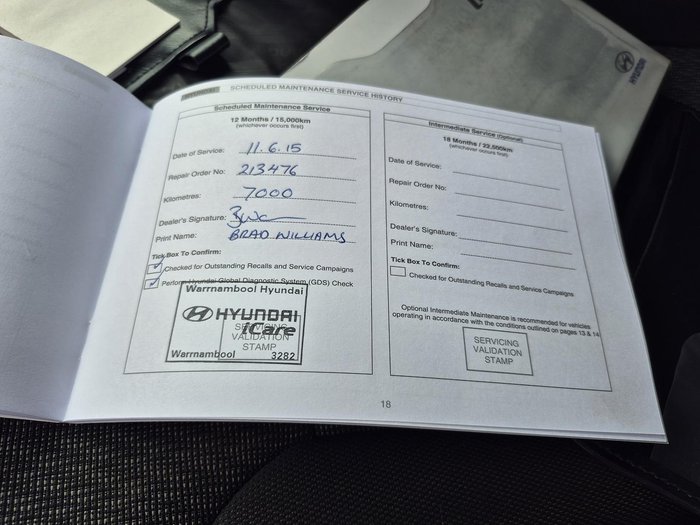 HYUNDAI
HYUNDAI SCHEDULED MAINTENANCE SERVICE HISTORY
Scheduled Maintenance Service
12 Months / 15,000km
(whichever occurs first)
Date of Service: 11.6.15
Repair Order No: 213476
Kilometres: 7000
Dealer's Signature:
Print Name: BRAD WILLIAMS
Tick Box To Confirm:
Checked for Outstanding Recalls and Service Campaigns
Perform Hyundai Global Diagnostic System (GDS) Check
Warrnambool Hyundai
HYUNDAI
iCare
SERVICING
VALIDATION
STAMP
Warrnambool 3282
Intermediate Service (optional)
18 Months / 22,500km
(whichever occurs first)
Date of Service:
Repair Order No:
Kilometres:
Dealer's Signature:
Print Name:
Tick Box To Confirm:
Checked for Outstanding Recalls and Service Campaigns
Optional Intermediate Maintenance is recommended for vehicles
operating in accordance with the conditions outlined on pages 13 & 14
SERVICING
VALIDATION
STAMP
18